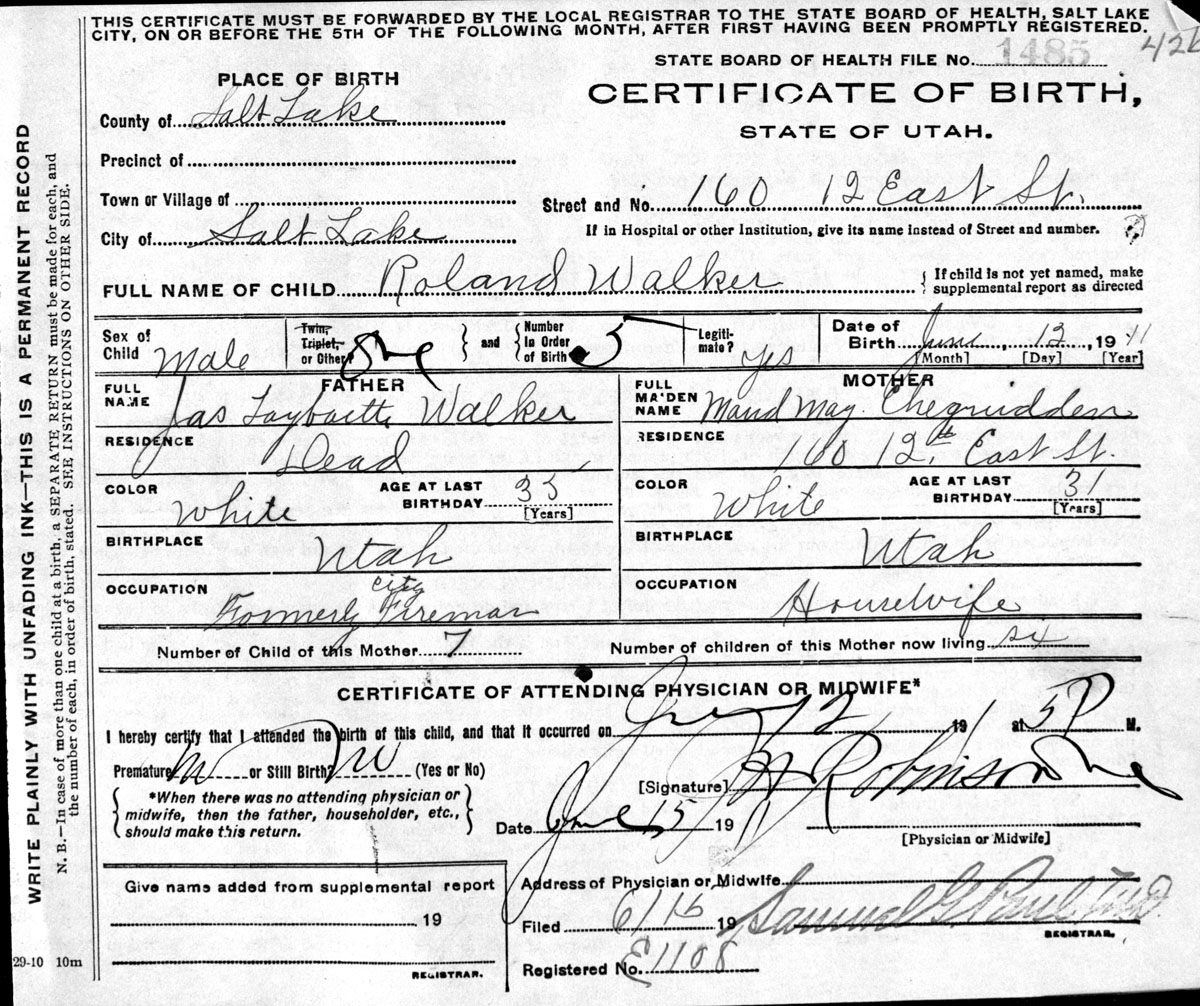 THIS CERTIFICATE MUST BE FORWARDED BY THE LOCAL REGISTRAR TO THE STATE BOARD OF HEALTH, SALT LAKE
CITY, ON OR BEFORE THE 5TH OF THE FOLLOWING MONTH, AFTER FIRST HAVING BEEN PROMPTLY REGISTERED.
STATE BOARD OF HEALTH FILE No. 1485
PLACE OF BIRTH
CERTIFICATE OF BIRTH,
STATE OF UTAH.
County of Salt Lake
Precinct of
Town or Village of
Street and No. 160 12 East St.
City of Salt Lake
If in Hospital or other Institution, give its name instead of Street and number.
FULL NAME OF CHILD Roland Walker
If child is not yet named, make
supplemental report as directed
Sex of Child Male
Twin, Triplet, or Other One and Number in Order of Birth 5
Legitimate? yes
Date of Birth June 13, 1911
[Month] [Day] [Year]
FATHER
FULL NAME Jas Walker
RESIDENCE Dead
COLOR White
AGE AT LAST BIRTHDAY 35 [Years]
BIRTHPLACE Utah
OCCUPATION Formerly city Fireman
MOTHER
FULL MAIDEN NAME Maud May
RESIDENCE 160 12th East St.
COLOR White
AGE AT LAST BIRTHDAY 31 [Years]
BIRTHPLACE Utah
OCCUPATION Housewife
Number of Child of this Mother 7
Number of children of this Mother now living six
CERTIFICATE OF ATTENDING PHYSICIAN OR MIDWIFE*
I hereby certify that I attended the birth of this child, and that it occurred on 191 at 5 P M.
Premature? or Still Birth? (Yes or No)
[Signature] Robinson
*When there was no attending physician or
midwife, then the father, householder, etc.,
should make this return.
Date June 15 1911
[Physician or Midwife]
Give name added from supplemental report
19
REGISTRAR.
Address of Physician or Midwife
Filed 6/16 19 Samuel G. Paul, M.D.
REGISTRAR.
Registered No. E1108
29-10 10m
WRITE PLAINLY WITH UNFADING INK—THIS IS A PERMANENT RECORD
N. B.—In case of more than one child at a birth, a SEPARATE RETURN must be made for each, and
the number of each, in order of birth, stated. SEE INSTRUCTIONS ON OTHER SIDE.